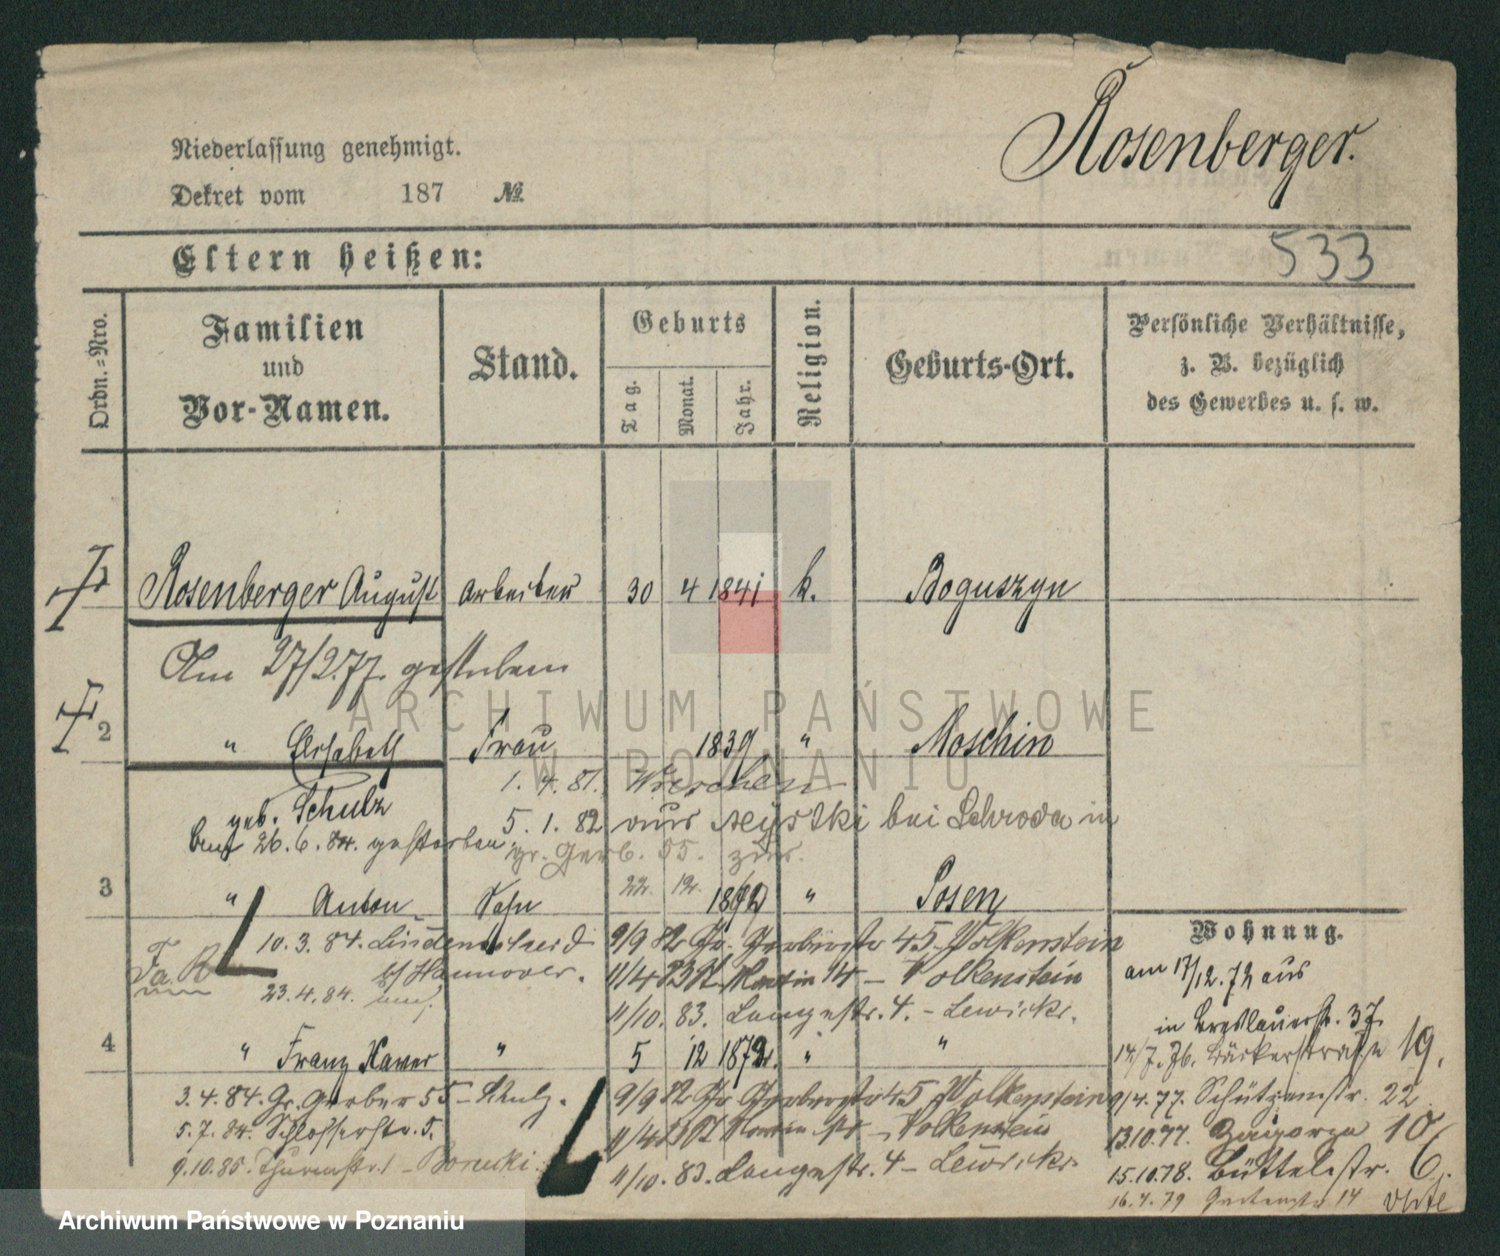 Rosenberger.
Niederlassung genehmigt.
Dekret vom 187 №
533
Eltern heißen:
Ordn.=Nro.
Familien
und
Vor-Namen.
Stand.
Geburts
Tag.
Monat.
Jahr.
Religion.
Geburts-Ort.
Persönliche Verhältnisse,
z. B. bezüglich
des Gewerbes u. s. w.
Rosenberger August Arbeiter 30 4 1841 k. Boguszyn
Am 27/2.77. gestorben
2 " Elisabeth Frau 1839 " Moschin
geb. Schulz
1. 4. 81. Wreschen
5. 1. 82 aus bei Schroda in
26. 6. 84. gestorben
gr. Gerb. 55. zur.
3 " Anton Sohn 22. 12. " Posen
10. 3. 84. Hannover.
23. 4. 84.
9/9 82 Gr. Gerberstr 45 Volkenstein
11/4 83 St. Martin 14 – Volkenstein
11/10. 83. Langestr. 4. – Lewicki.
4 " Franz Xaver " 5 12 1872. " "
3. 4. 84. Gr. Gerber 55 – Schulz.
5. 7. 84. Schlosserstr. 5.
9. 10. 85. Thurmstr. 1 – Borucki.
9/9 82 Gr. Gerberstr 45 Volkenstein
11/4 83 St Martin – Volkenstein
11/10. 83. Langestr. 4 – Lewicki
Wohnung.
am 17/12. 72 aus
in Breslauerstr. 37.
14/7. 76. Bäckerstraße 19.
9/4. 77. Schützenstr. 22
13.10.77. Zagorze 10
15.10.78. Büttelstr. 6.
16. 4. 79 Gartenstr 14
ARCHIWUM PAŃSTWOWE
W POZNANIU
Archiwum Państwowe w Poznaniu